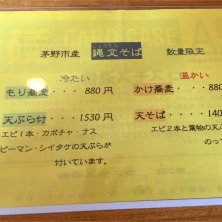 茅野市産 縄文そば 数量限定
冷たい 温かい
もり蕎麦・・・880円 かけ蕎麦・・・880
天ぷら付・・・1530円 天そば・・・・140
エビ1本・カボチャ・ナス エビ2本と葉物の天ぷ
ピーマン・シイタケの天ぷらが のって
付いています。